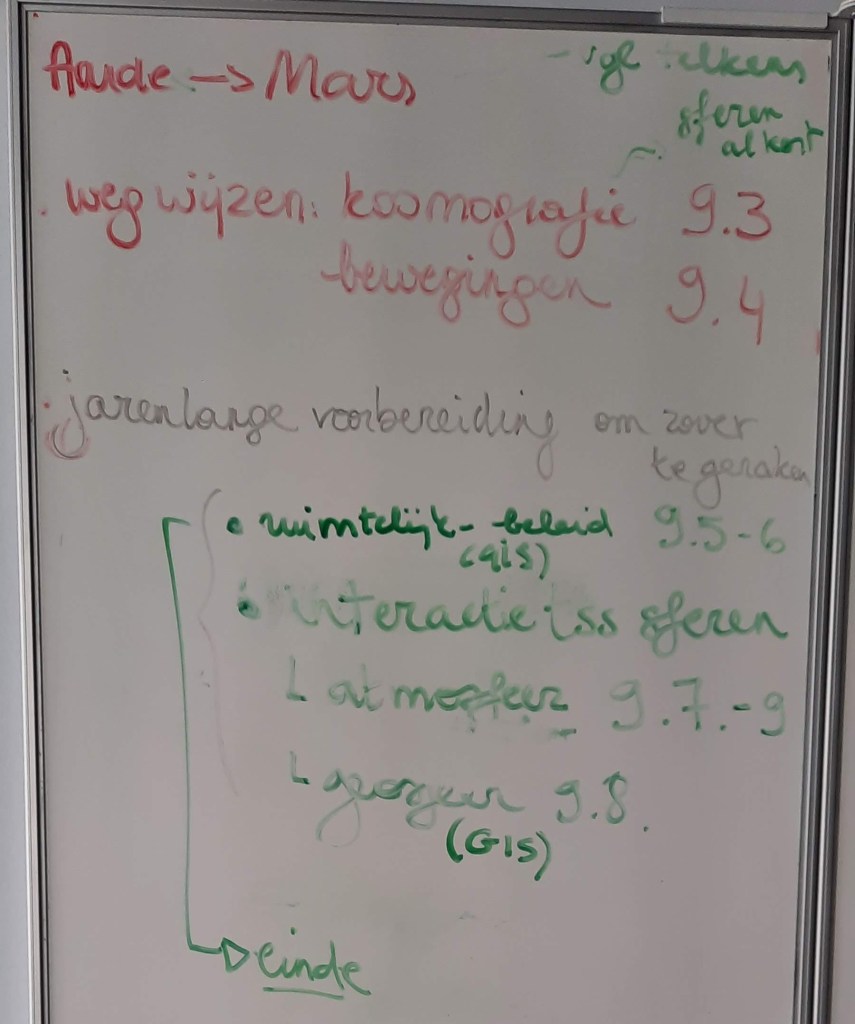 Aarde -> Mars
- vgl telkens
sferen
al kort
. weg wijzen: kosmografie 9.3
bewegingen 9.4
. jarenlange voorbereiding om zover
te geraken
• ruimtelijk beleid 9.5-6
(GIS)
• interactie tss sferen
└ atmosfeer 9.7.-9
└ geosfeer 9.8.
(GIS)
einde